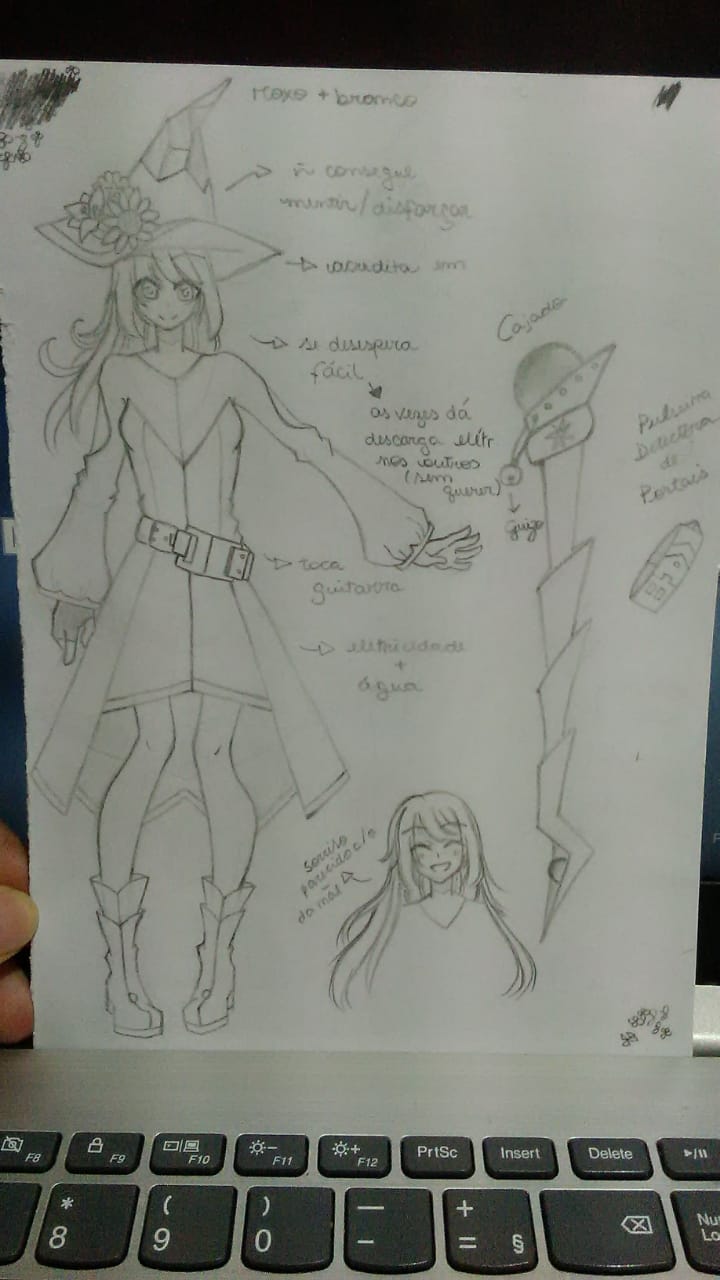 roxo + branco
ñ consegue
mentir/disfarçar
acredita em
se desespera
fácil
as vezes dá
descarga elétr
nos outros
(sem
querer)
toca
guitarra
eletricidade
+
água
Cajado
guizo
Pulseira
Detectora
de
Portais
sorriso
parecido c/o
da mãe
F8
F9
F10
F11
F12
PrtSc
Insert
Delete
* 8
( 9
) 0
— -
+ = §
Nu
Lo